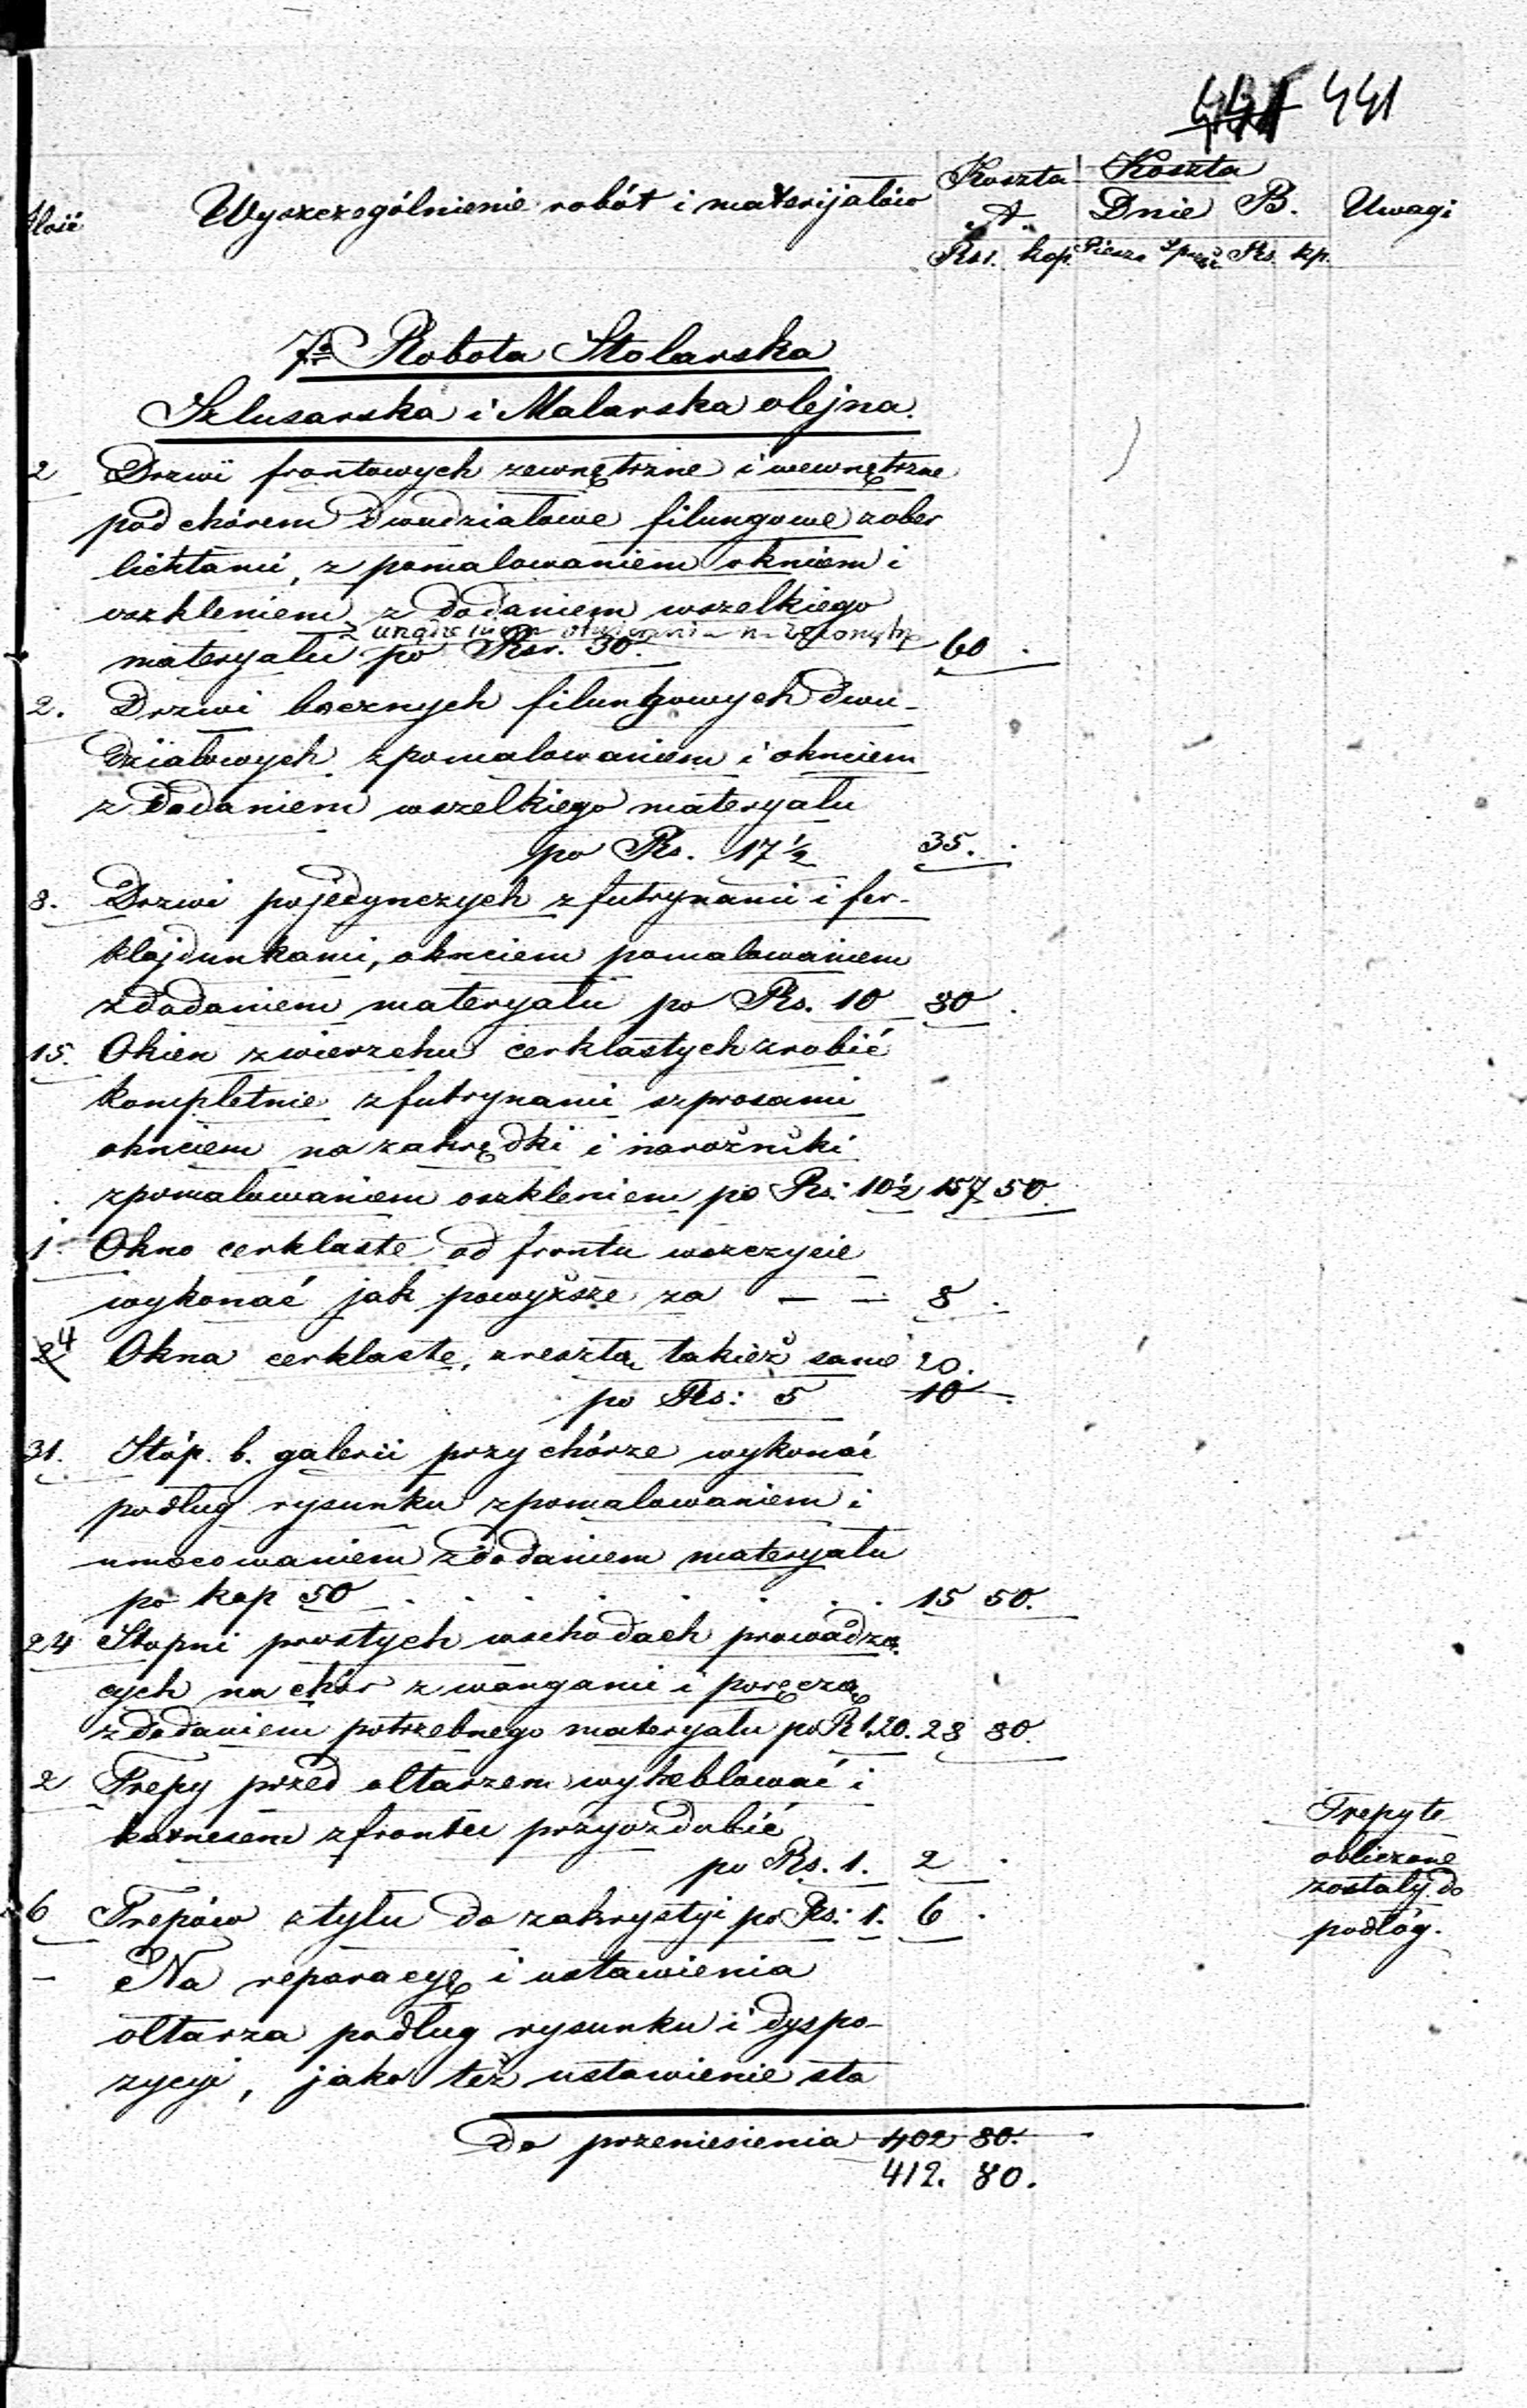 441 441
Ilość Wyszczególnienie robót i materijałów Koszta A. Koszta Dnie B. Uwagi
Rsr. kop. Piesze Sprzęż Rs. kp.
7a Robota Stolarska
Szlusarska i Malarska olejna.
2 Drzwi frontowych zewnętrzne i wewnętrzne
pod chórem dwudziałowe filungowe z ober
lichtami, z pomalowaniem okniem i
oszkleniem z dodaniem wszelkiego
z urządzeniem otwierania na zewnątrz
materyału po Rsr. 30. 60 .
2. Drzwi bocznych filungowych dwu-
działowych z pomalowaniem i okuciem
z dodaniem wszelkiego materyału
po Rs. 17 1/2 35. .
8. Drzwi pojedynczych z futrynami i fer-
klajdunkami, okuciem pomalowaniem
z dodaniem materyału po Rs. 10 80 .
15. Okien z wierzchu cerklastych zrobić
kompletnie z futrynami szprosami
okuciem na zakrędki i narożniki
z pomalowaniem oszkleniem po Rs: 10 1/2 157 50.
1. Okno cerklaste od frontu w szczycie
wykonać jak powyższe za — — 8 .
2 4 Okna cerklaste, zresztą takież same 20.
po Rs: 5 10 .
31. Stóp. b. galerii przy chórze wykonać
podług rysunku z pomalowaniem i
umocowaniem z dodaniem materyału
po kop 50 . . . . . . . . 15 50.
24 Stopni prostych w schodach prowadzą
cych na chór z wangami i poręczą
z dodaniem potrzebnego materyału po R 1.20. 28 80.
2 Trepy przed ołtarzem wyheblować i
karnesem z frontu przyozdobić
po Rs. 1. 2 .
Trepy te
obliczone
zostały do
podłóg.
6 Trepów z tyłu do zakrystyi po Rs: 1. 6 .
– Na reparacyę i ustawienia
ołtarza podług rysunku i dyspo-
zycyi, jako też ustawienie sta
do przeniesienia 402 80.
412. 80.